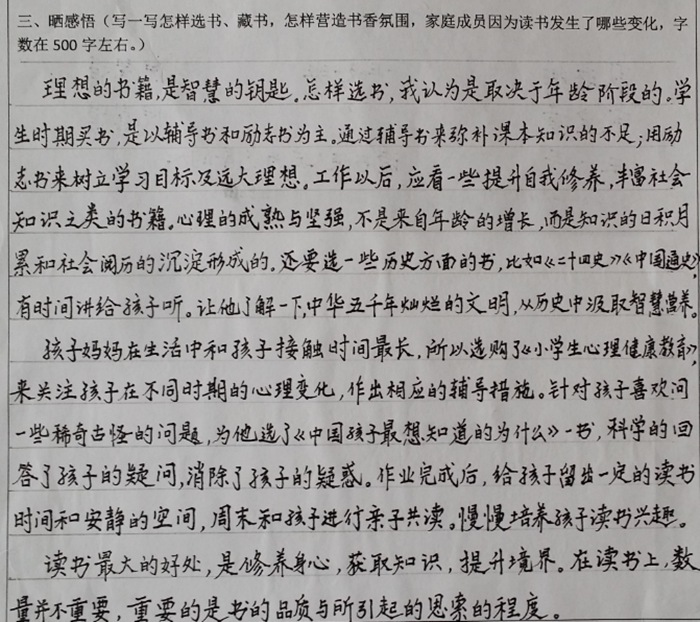 三、晒感悟（写一写怎样选书、藏书，怎样营造书香氛围，家庭成员因为读书发生了哪些变化，字
数在 500 字左右。）
理想的书籍,是智慧的钥匙。怎样选书,我认为是取决于年龄阶段的。学
生时期买书,是以辅导书和励志书为主。通过辅导书来弥补课本知识的不足;用励
志书来树立学习目标及远大理想。工作以后,应看一些提升自我修养,丰富社会
知识之类的书籍。心理的成熟与坚强,不是来自年龄的增长,而是知识的日积月
累和社会阅历的沉淀形成的。还要选一些历史方面的书,比如《二十四史》《中国通史》
有时间讲给孩子听。让他了解一下,中华五千年灿烂的文明,从历史中汲取智慧营养。
孩子妈妈在生活中和孩子接触时间最长,所以选购了《小学生心理健康教育》,
来关注孩子在不同时期的心理变化,作出相应的辅导措施。针对孩子喜欢问
一些稀奇古怪的问题,为他选了《中国孩子最想知道的为什么》一书,科学的回
答了孩子的疑问,消除了孩子的疑惑。作业完成后,给孩子留出一定的读书
时间和安静的空间,周末和孩子进行亲子共读。慢慢培养孩子读书兴趣。
读书最大的好处,是修养身心,获取知识,提升境界。在读书上,数
量并不重要,重要的是书的品质与所引起的思索的程度。